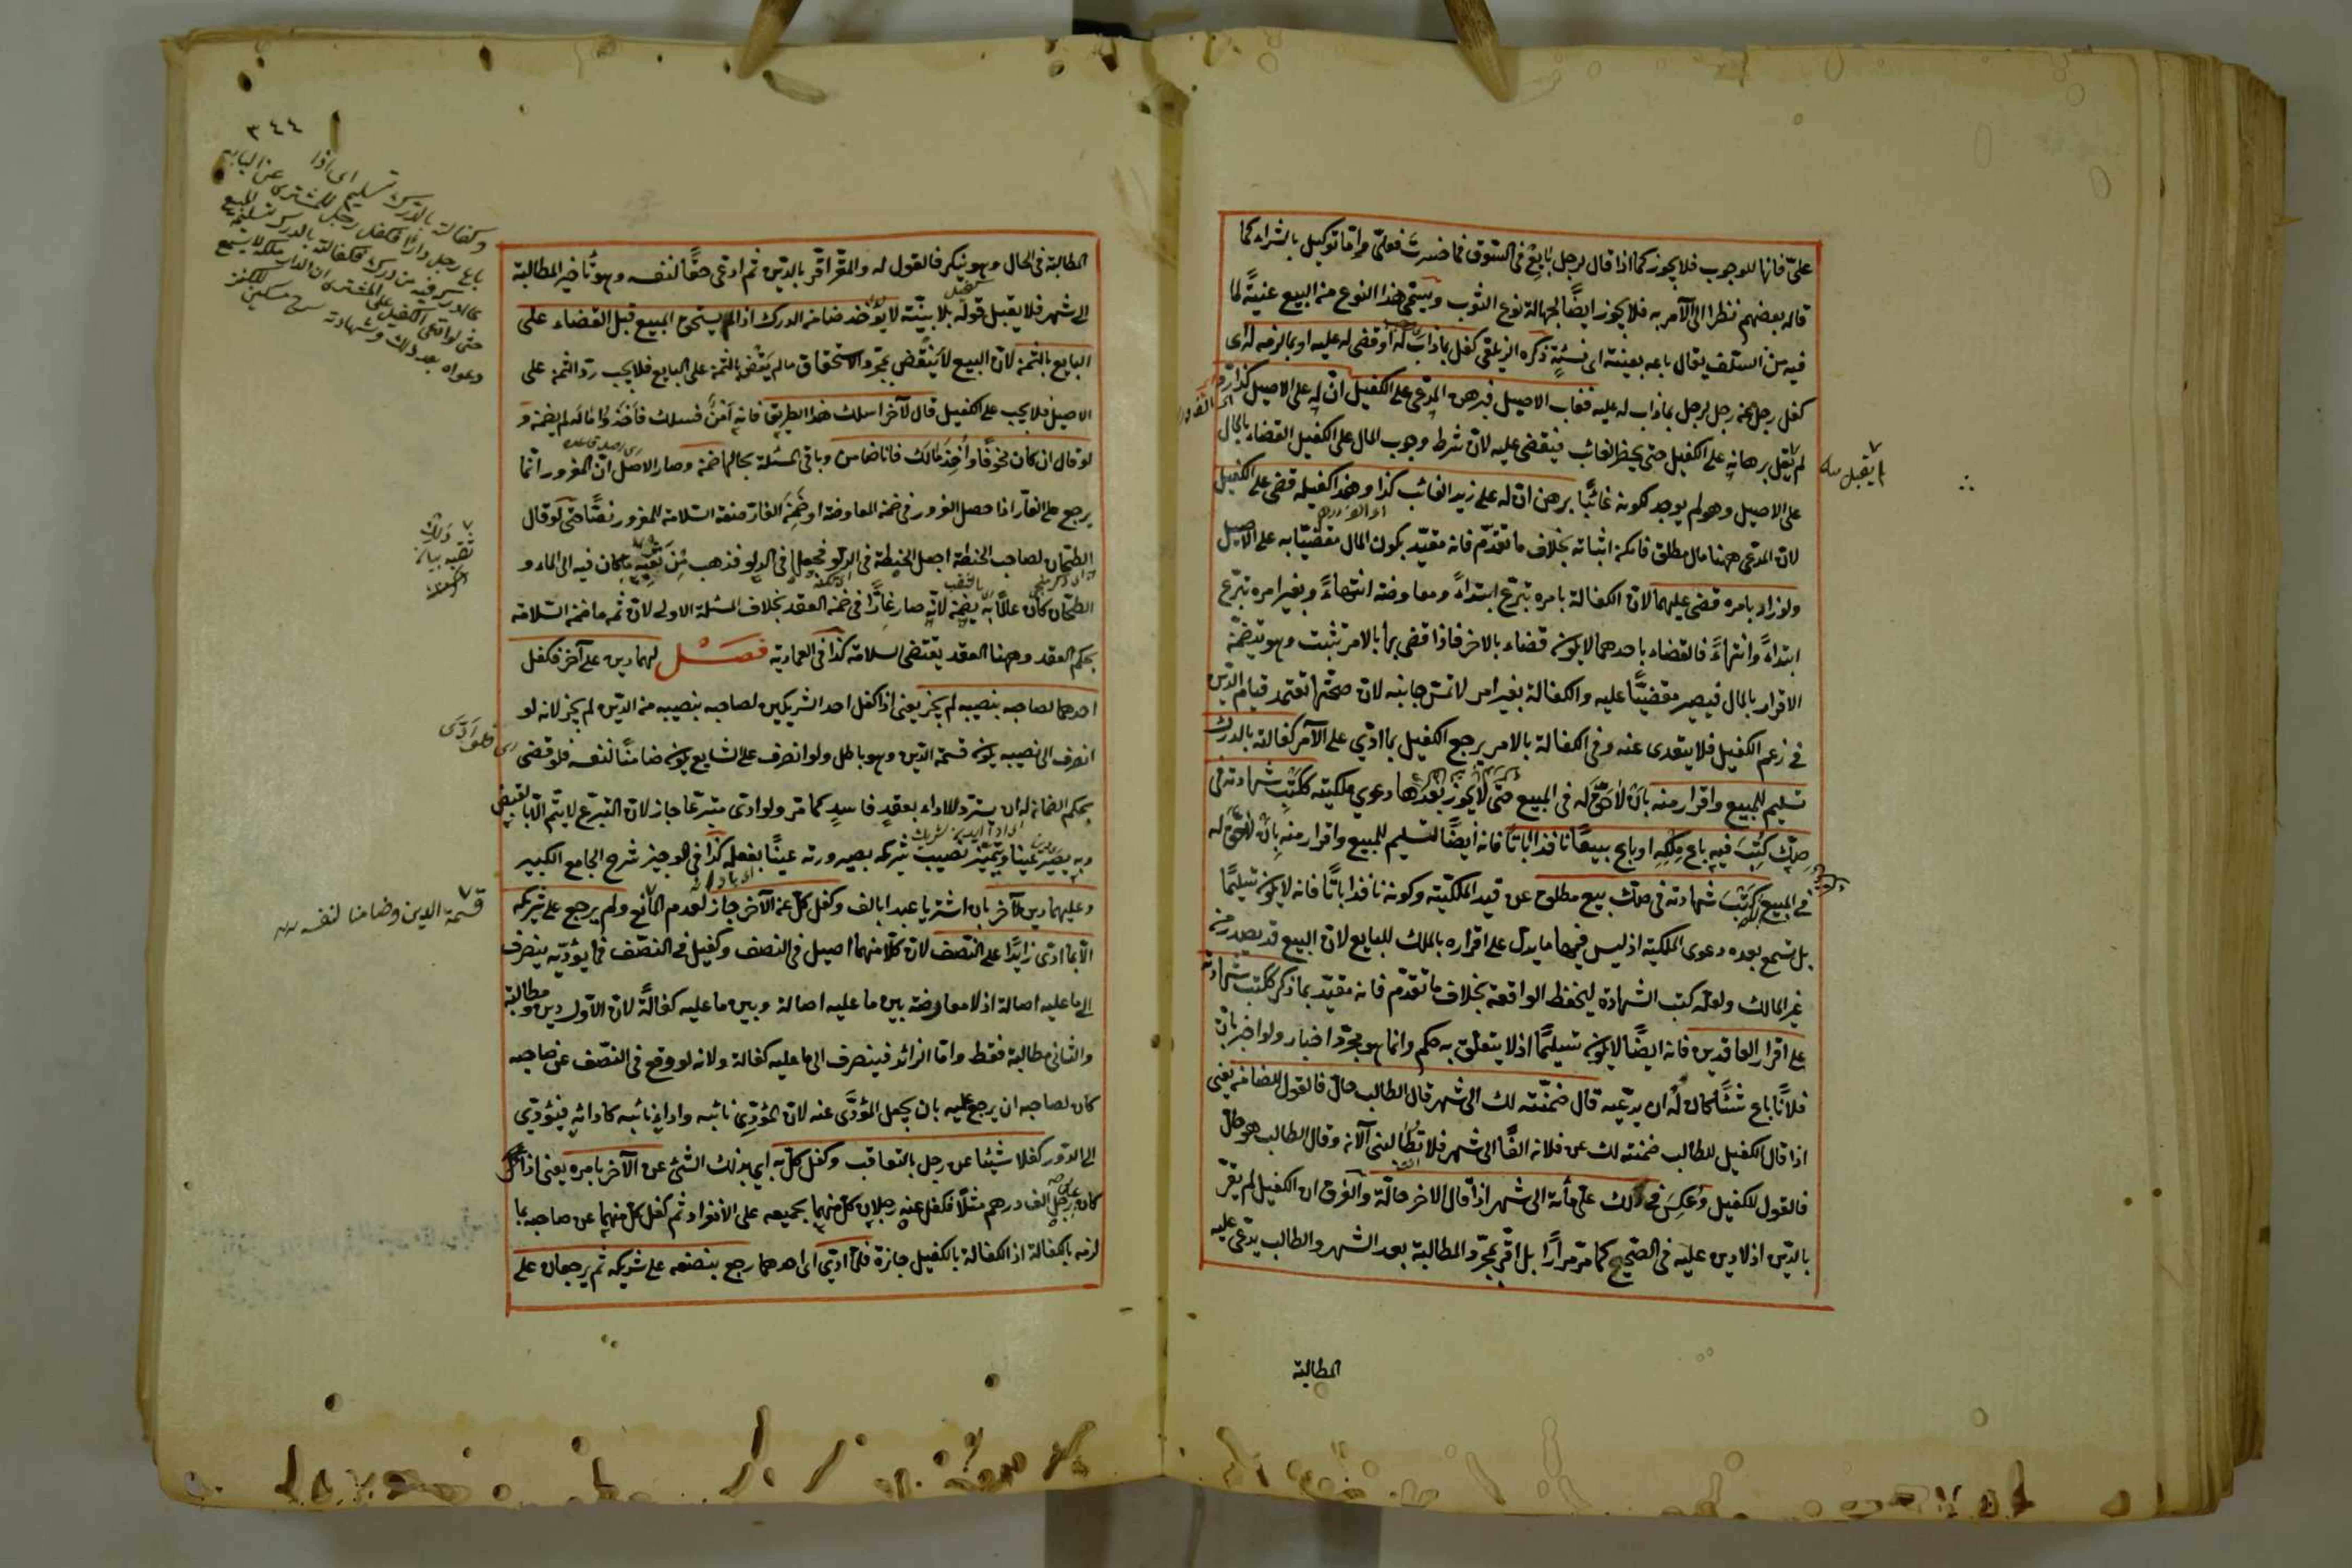 علىّ فانها للوجوب فلا يجوز كما اذا قال لرجل بايع فى السوق فما خسرت فعلىّ واما توكيل بالشراء كما
قاله بعضهم نظرا الى الآمر به فلا يجوز ايضًا لجهالة نوع الثوب ويسمى هذا النوع من البيع عنية لما
فيه من السلف يقال باعه بعينة اى نسئةٍ ذكره الزيلعى كفل بماذاب له او قضى له عليه او بما لزمه له اى
كفل رجل عن رجل لرجل بماذاب له عليه فغاب الاصيل فبرهن المدعى على الكفيل ان له على الاصيل كذا
لم يقبل برهانه على الكفيل حتى يحضر الغائب فيقضى عليه لان شرط وجوب المال على الكفيل القضاء بالمال
على الاصيل وهو لم يوجد لكونه غائبًا برهن ان له على زيد الغائب كذا وهذا كفيله قضى على الكفيل
لان المدعى ههنا مال مطلق فامكن اثباته بخلاف ما تقدّم فانه مقيّد بكون المال مقضيّا به على الاصيل
ولو زاد بامره قضى عليهما لان الكفالة بامره تبرّع ابتداءً ومعاوضة انتهاءً وبغير امره تبرّع
ابتداءً وانتهاءً فالقضاء باحدهما لا يكون قضاء بالاخر فاذا قضى بها بالامر تثبت وهو يتضمّن
الاقرار بالمال فيصير مقضيًّا عليه والكفالة بغير امر لا تمسّ جانبه لان صحّتها تعتمد قيام الدّين
فى زعم الكفيل فلا يتعدى عنه وفى الكفالة بالامر يرجع الكفيل بما ادّي على الآمر كفالته بالدرك
تسليم للمبيع واقرار منه بان لا حقّ له فى المبيع حتى لا يجوز بعدها دعوي ملكيته ككتب شهادته فى
صكّ كتب فيه باع ملكه او باع بيعًا نافذا باتًا فانه ايضًا تسليم للمبيع واقرار منه بان لا حقّ له
فى المبيع كتب شهادته فى صكّ بيع مطلق عن قيد الملكيّة وكونه نافذا باتًّا فانه لا يكون تسليمًا
بل تسمع بعده دعوى الملكية اذ ليس فيها ما يدلّ على اقراره بالملك للبايع لان البيع قد يصدر من
غير المالك ولعلّه كتب الشهادة ليحفظ الواقعة بخلاف ما تقدّم فانه مقيّد بما ذكر ككتب شهادته
على اقرار العاقدين فانه ايضًا لا يكون تسليمًا اذ لا يتعلق به حكم وانما هو مجرّد اخبار ولو اخبر بان
فلانًا باع شيئًا كان له ان يدّعيه قال ضمنته لك الى شهر قال الطالب حالّ فالقول للضامن يعنى
اذا قال الكفيل للطالب ضمنته لك عن فلان الفًا الى شهر فلا تطالبنى الآن وقال الطالب هو حالّ
فالقول للكفيل وعكس فى لك علىّ مأة الى شهر اذا قال الاخر حالّة والفرق ان الكفيل لم يقرّ
بالدّين اذ لا دين عليه فى الصّحيح كما مرّ مرارًا بل اقرّ بمجرّد المطالبة بعد الشهر والطالب يدّعى عليه
المطالبة
لم يقبل
٣٤٤
المطالبة فى الحال وهو ينكر فالقول له والمقرّ اقرّ بالدّين ثم ادعى حقًّا لنفسه وهو تأخير المطالبة
الى شهر فلا يقبل قوله بلا بيّنة لا يؤخذ ضامن الدرك اذا لم يستحق المبيع قبل القضاء على
البايع بالثمن لان البيع لا ينتقض بمجرّد الاستحقاق مالم يقض بالثمن على البايع فلا يجب ردّ الثمن على
الاصيل فلا يجب على الكفيل قال لآخر اسلك هذا الطريق فانه آمنٌ فسلك فاخذوا ماله لم يضمن و
لو قال ان كان مخوفًا واُخذ مالك فانا ضامن وباقى المسئلة بحالها ضمن وصار الاصل ان المغرور انما
يرجع على الغارّ اذا حصل الغرور فى ضمن المعاوضة او ضمن الغارّ صفة السّلامة للمغرور نصًّا حتى لو قال
الطحّان لصاحب الحنطة اجعل الحنطة فى الدلو فجعلها فى الدلو فذهب من ثقبه ما كان فيه الى الماء و
الطحّان كان عالمًا به يضمن لانه صار غارًّا فى ضمن العقد بخلاف المسئلة الاولى لان ثم ما ضمن السّلامة
بحكم العقد وههنا العقد يقتضى السلامة كذا فى العمادية فصل لهما دين على آخر فكفل
احدهما لصاحبه بنصيبه لم يجز يعنى اذا كفل احد الشريكين لصاحبه بنصيبه من الدّين لم يجز لانه لو
انصرف الى نصيبه يكون قسمة الدّين وهو باطل ولو انصرف على الشايع يكون ضامنًا لنفسه فلو قضى
بحكم الضمان له ان يستردّ للاداء بعقدٍ فاسدٍ كما مرّ ولو ادى متبرّعًا جاز لان التبرّع لا يتمّ الّا بالقبض
وبه يصير عينا ويتميّز نصيب شريكه بصيرورته عينًا بفعله كذا فى الوجيز شرح الجامع الكبير
وعليهما دين لآخر بان اشتريا عبدا بالف وكفل كلّ عن الآخر جاز لعدم المانع ولم يرجع على شريكه
الّا بما ادى زايدًا على النّصف لان كلّا منهما اصيل فى النصف وكفيل فى النصف فما يؤدّيه ينصرف
الى ما عليه اصالة اذ لا معارضة بين ما عليه اصالة وبين ما عليه كفالةً لان الاوّل دين ومطالبة
والثانى مطالبة فقط واما الزائد فينصرف الى ما عليه كفالة ولانه لو وقع فى النصف عن صاحبه
كان لصاحبه ان يرجع عليه بان يجعل المؤدّى عنه لان المؤدّي نائبه واداء نائبه كادائه فيؤدّي
الى الدور كفلا شيئا عن رجل بالتعاقب وكفل كلّ به اي بذلك الشئ عن الآخر بامره يعنى اذا
كان على رجل الف درهم مثلًا فكفل عنه رجلان كلّ منهما بجميعه على الانفراد ثم كفل كلّ منهما عن صاحبه بما
لزمه بالكفالة اذ الكفالة بالكفيل جازة فما ادّي اى احدهما رجع بنصفه على شريكه ثم يرجعان على
قسمة الدين وضامنا لنفسه